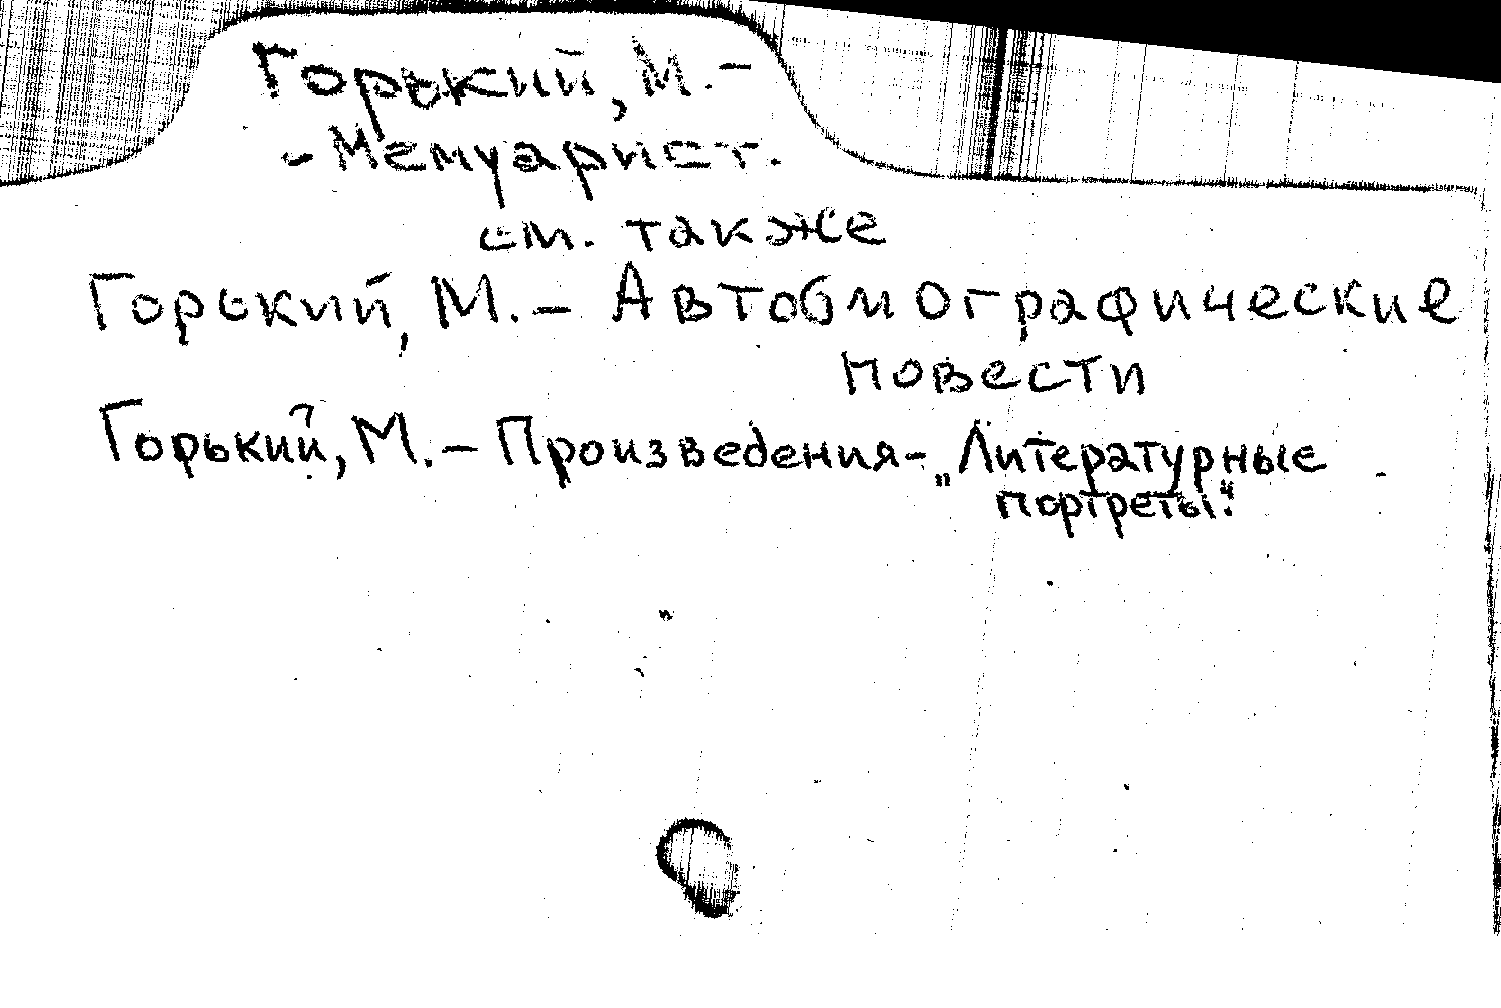 Горький, М. -
- Мемуарист.
см. также
Горький, М. - Автобиографические
повести
Горький, М. - Произведения - „Литературные
портреты“.